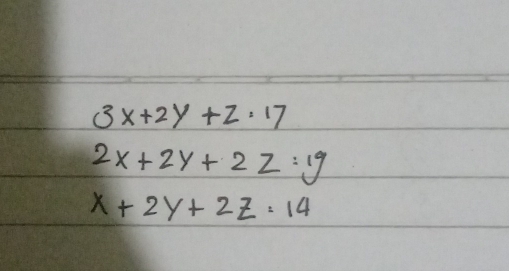 3x+2y+z:17
2x+2y+2z:19
x+2y+2z:14